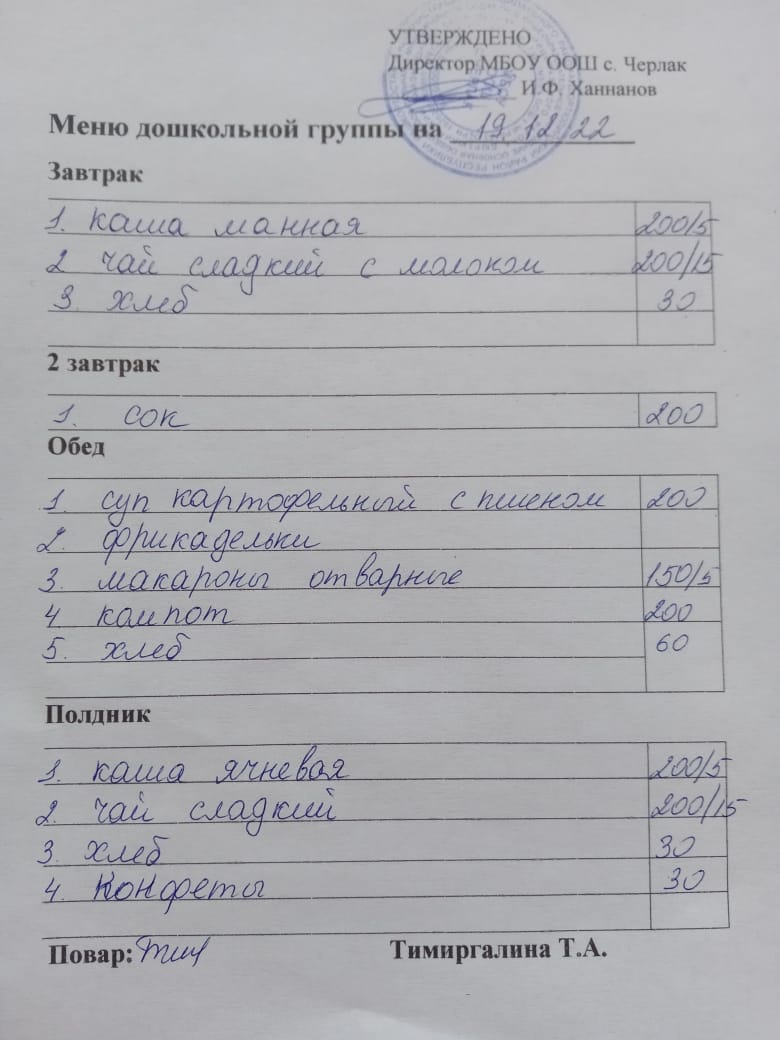 УТВЕРЖДЕНО
Директор МБОУ ООШ с. Черлак
И.Ф. Ханнанов
Меню дошкольной группы на 19.12.22
Завтрак
1. каша манная 200/5
2 чай сладкий с молоком 200/15
3. хлеб 30
2 завтрак
1. сок 200
Обед
1 суп картофельный с пшеном 200
2. фрикадельки
3. макароны отварные 150/5
4 компот 200
5. хлеб 60
Полдник
1. каша ячневая 200/5
2. чай сладкий 200/15
3. хлеб 30
4. конфеты 30
Повар: Тимиргалина Т.А.